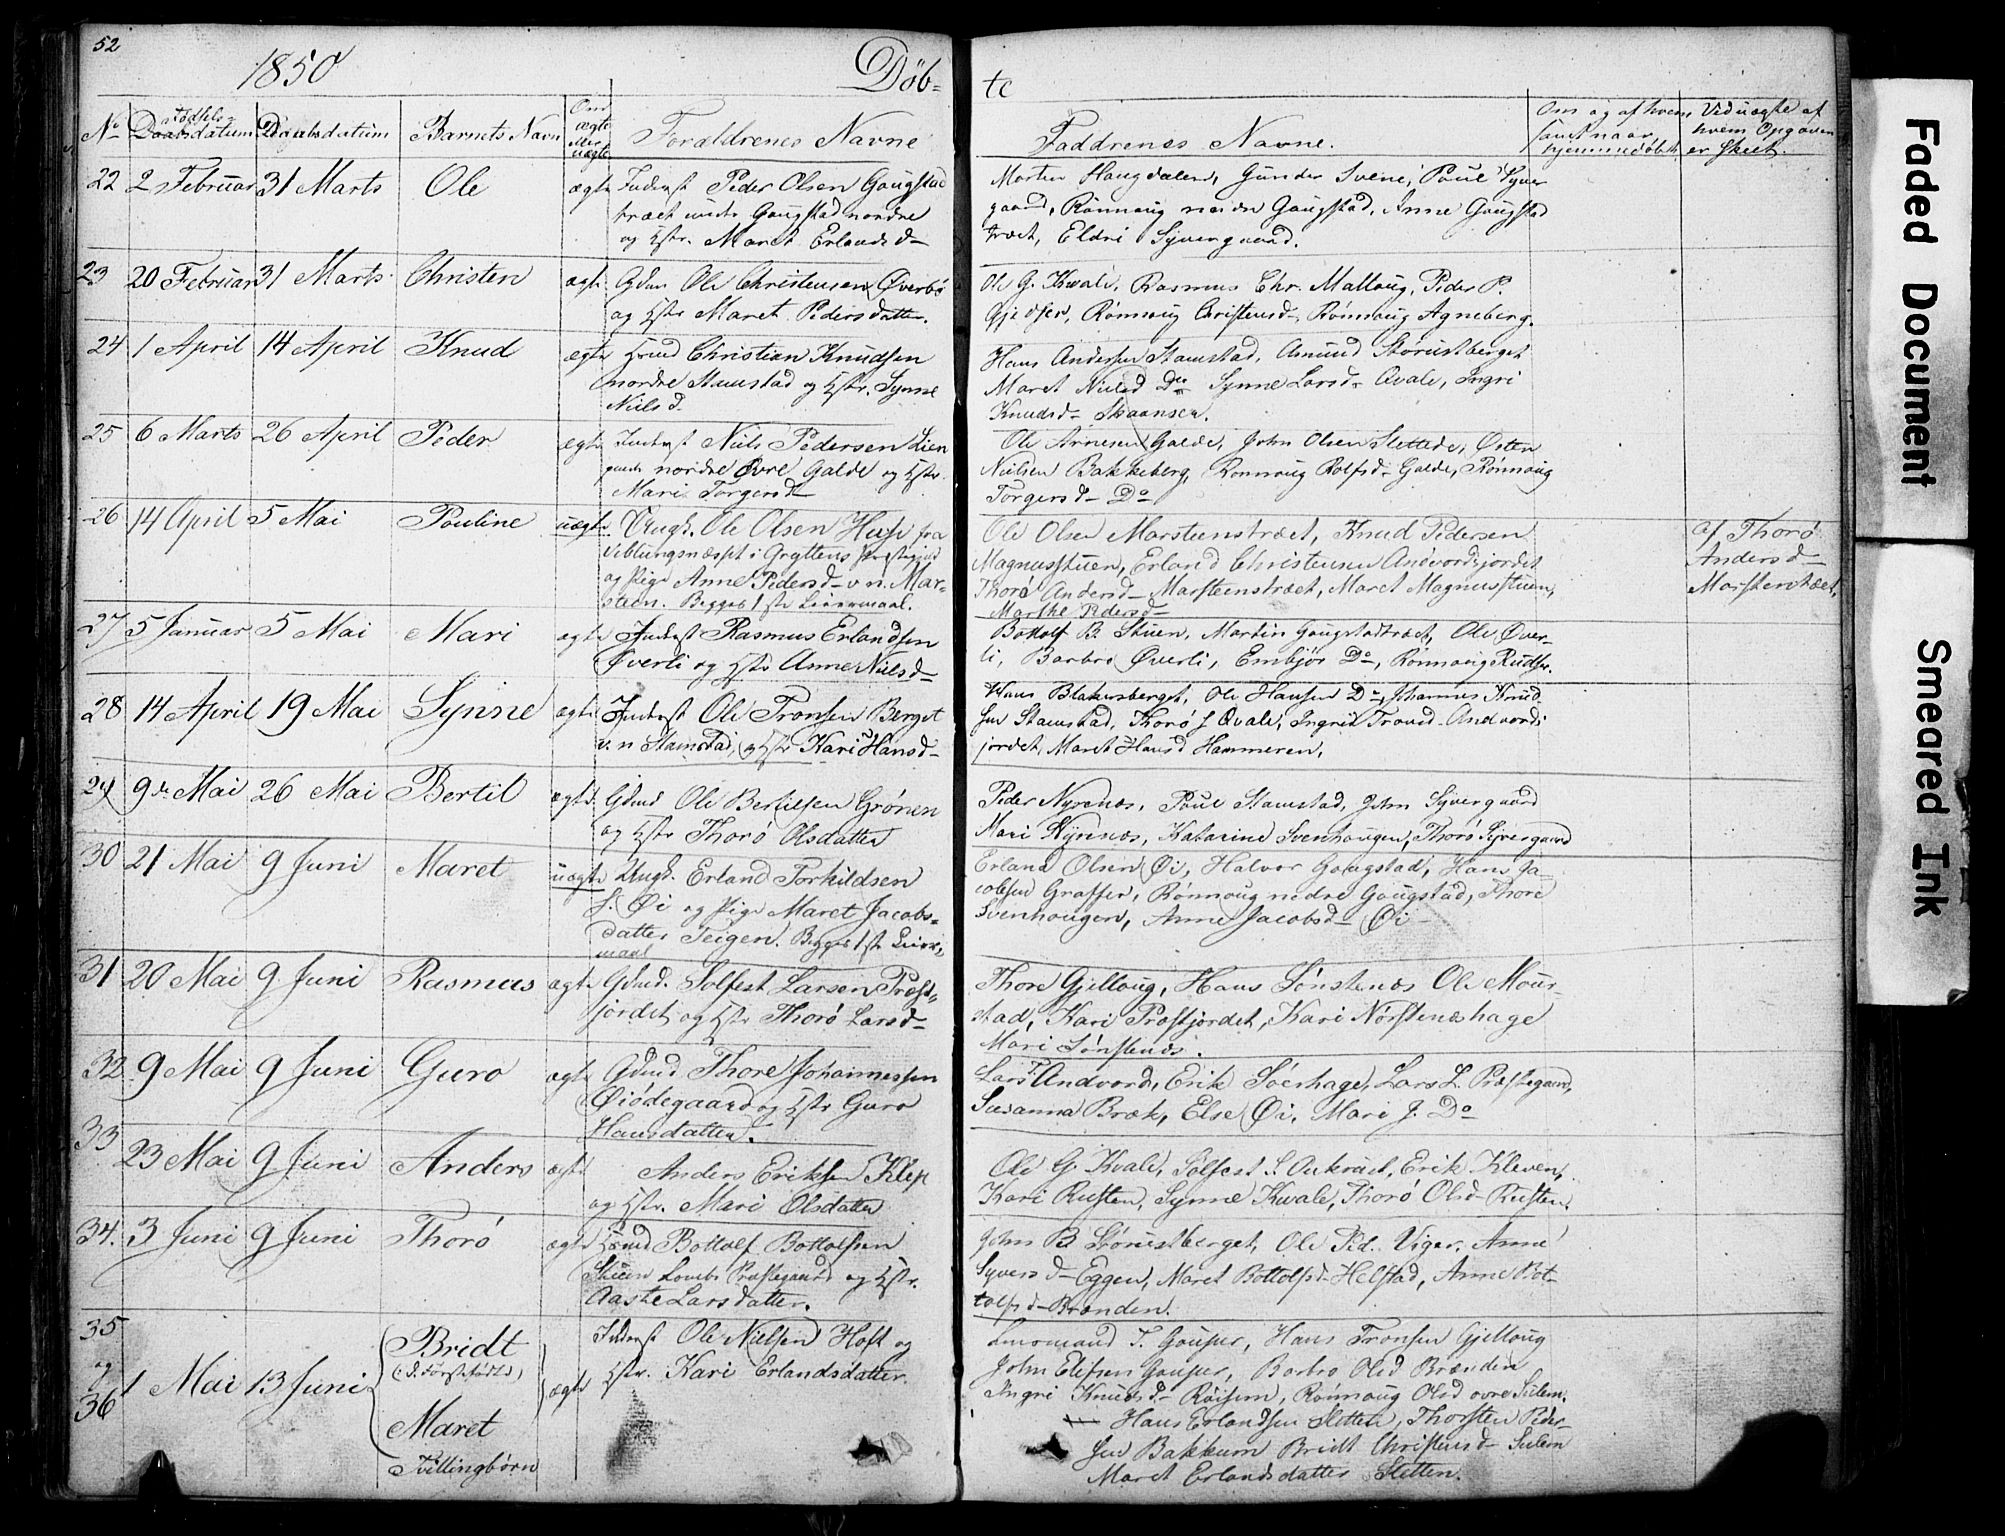 52
1850
Døb-
te
No
Fødsels-
Daabsdatum
Daabsdatum
Barnets Navn
Om
ægte
eller
uægte
Forældrenes Navne
Faddrenes Navne.
Om og af hvem,
samt naar,
hjemmedøbt
Ved uægte af
hvem Opgaven
er skeet.
22 2 Februar 31 Marts Ole ægte Inderst Peder Olsen Gougstad
træet under Gougstad nordre
og Hstr. Maret Erlandsd-
Morten Hougdalen, Gunder Svene, Poul Syver
gaard, Rønnoug nedre Gougstad, Anne Gougstad
træet, Eldri Syvergaard.
23 20 Februar 31 Marts Christen ægte Gdmd Ole Christensen Øverbø
og Hstr Maret Pedersdatter.
Ole G. Kvale, Rasmus Chr. Malloug, Peder P.
Gjedser, Rønnoug Christensd-, Rønnoug Agneberg.
24 1 April 14 April Knud ægte Hmd Christian Knudsen
nordre Stamstad og Hstr. Synne
Nielsd.
Hans Andersen Stamstad, Amund Storustberget
Maret Nielsd Do Synne Larsd- Qvale, Ingri
Knudsd- Skaansen.
25 6 Marts 26 April Peder ægte Inderst Niels Pedersen Lien
nordre Øvre Galde og Hstr.
Mari Torgersd-
Ole Arnesen Galde, John Olsen Slettede, Østen
Nielsen Bakkeberg, Rønnoug Rolfsd- Galde, Rønnoug
Torgersd- Do
26 14 April 5 Mai Pouline uægte Ungk. Ole Olsen Huse fra
Veblungsnæsset i Gryttens Præstegjeld
og Pige Anne Pedersd- v. n. Mar-
steen. Begges 1ste Leiermaal.
Ole Olsen Marsteentræet, Knud Pedersen
Magnusstuen, Erland Christensen Andvordsjordet
Thorø Andersd- Marsteenstræet, Maret Magnusstuen,
Marthe Pedersd-
af Thorø
Andersd-
Marsteentræet.
27 5 Januar 5 Mai Mari ægte Inderst Rasmus Erlandsen
Øverli og Hstr Anne Nielsd-
Bottolf B. Stuen, Martin Gougstadtræet, Ole Øver-
li, Barbro Øverli, Embjør Do, Rønnoug Rudser.
28 14 April 19 Mai Synne ægte Inderst Ole Tronsen Berget
v. n Stamstad, og Hstr Kari Hansd-
Hans Blakersberget, Ole Hansen Do, Johannes Knud-
sen Stamstad, Thorø J Qvale, Ingrid Trond- Andvords
jordet, Maret Hansd Hammeren,
29 9de Mai 26 Mai Bertil ægte Gdmd Ole Bertilsen Grønen
og Hstr Thorø Olsdatter
Peder Nyrenæs, Poul Stamstad, John Syvergaard
Mari Nyrenæs, Katarine Svenhougen, Thorø Syvergaard
30 21 Mai 9 Juni Maret uægte Ungk. Erland Torkildsen
S. Øi og Pige Maret Jacobs-
datter Teigen. Begges 1ste Leier-
maal
Erland Olsen Øi, Halvor Gougstad, Hans Ja-
cobsen Graffer, Rønnoug nedre Gougstad, Thore
Svenhougen, Anne Jacobsd- Øi
31 20 Mai 9 Juni Rasmus ægte Gdmd. Solfest Larsen Præst-
jordet og Hstr Thorø Larsd-
Thore Gjelloug, Hans Sønstenæs Ole Mour-
stad, Kari Præstjordet, Kari Nørstenæshage
Mari Sønstenæs.
32 9 Mai 9 Juni Guro ægte Gdmd Thore Johannessen
Øiødegaard og Hstr Guro
Hansdatter.
Lars T. Andvord, Erik Søerhage, Lars L. Præstegaard,
Susanna Bræk, Else Øi, Mari J. Do
33 23 Mai 9 Juni Anders ægte Anders Eriksen Klep
og Hstr. Mari Olsdatter
Ole G. Kvale, Sølfest S. Aukrust, Erik Kleven,
Kari Rusten, Synne Kvale, Thorø Olsd- Rusten.
34. 3 Juni 9 Juni Thorø ægte Hmd Bottolf Bottolfsen
Stuen Loms Præstegaard og Hstr.
Aaste Larsdatter.
John B Størustberget, Ole Ped. Viger, Anne
Syversd- Eggen, Maret Bottolfsd- Helstad, Anne Bot-
tolfsd- Brænden.
35
og
36 1 Mai 13 Juni Bridt
(d. Førstefødte)
Maret
Tvillingbørn
ægte Inderst Ole Nielsen Hoft og
Hstr. Kari Erlandsdatter.
T. Gouper, Hans Tronsen Gjelloug
John Elefsen Gouper, Barbro Olsd Brænden
Ingri Knudsd- Røisem, Rønnoug Olsd øvre Sulem.
Hans Erlandsen Sletten, Thorsten Peder-
sen Bakkum Bridt Christensd- Sulem
Maret Erlandsdatter Sletten.
Faded Document
Smeared Ink